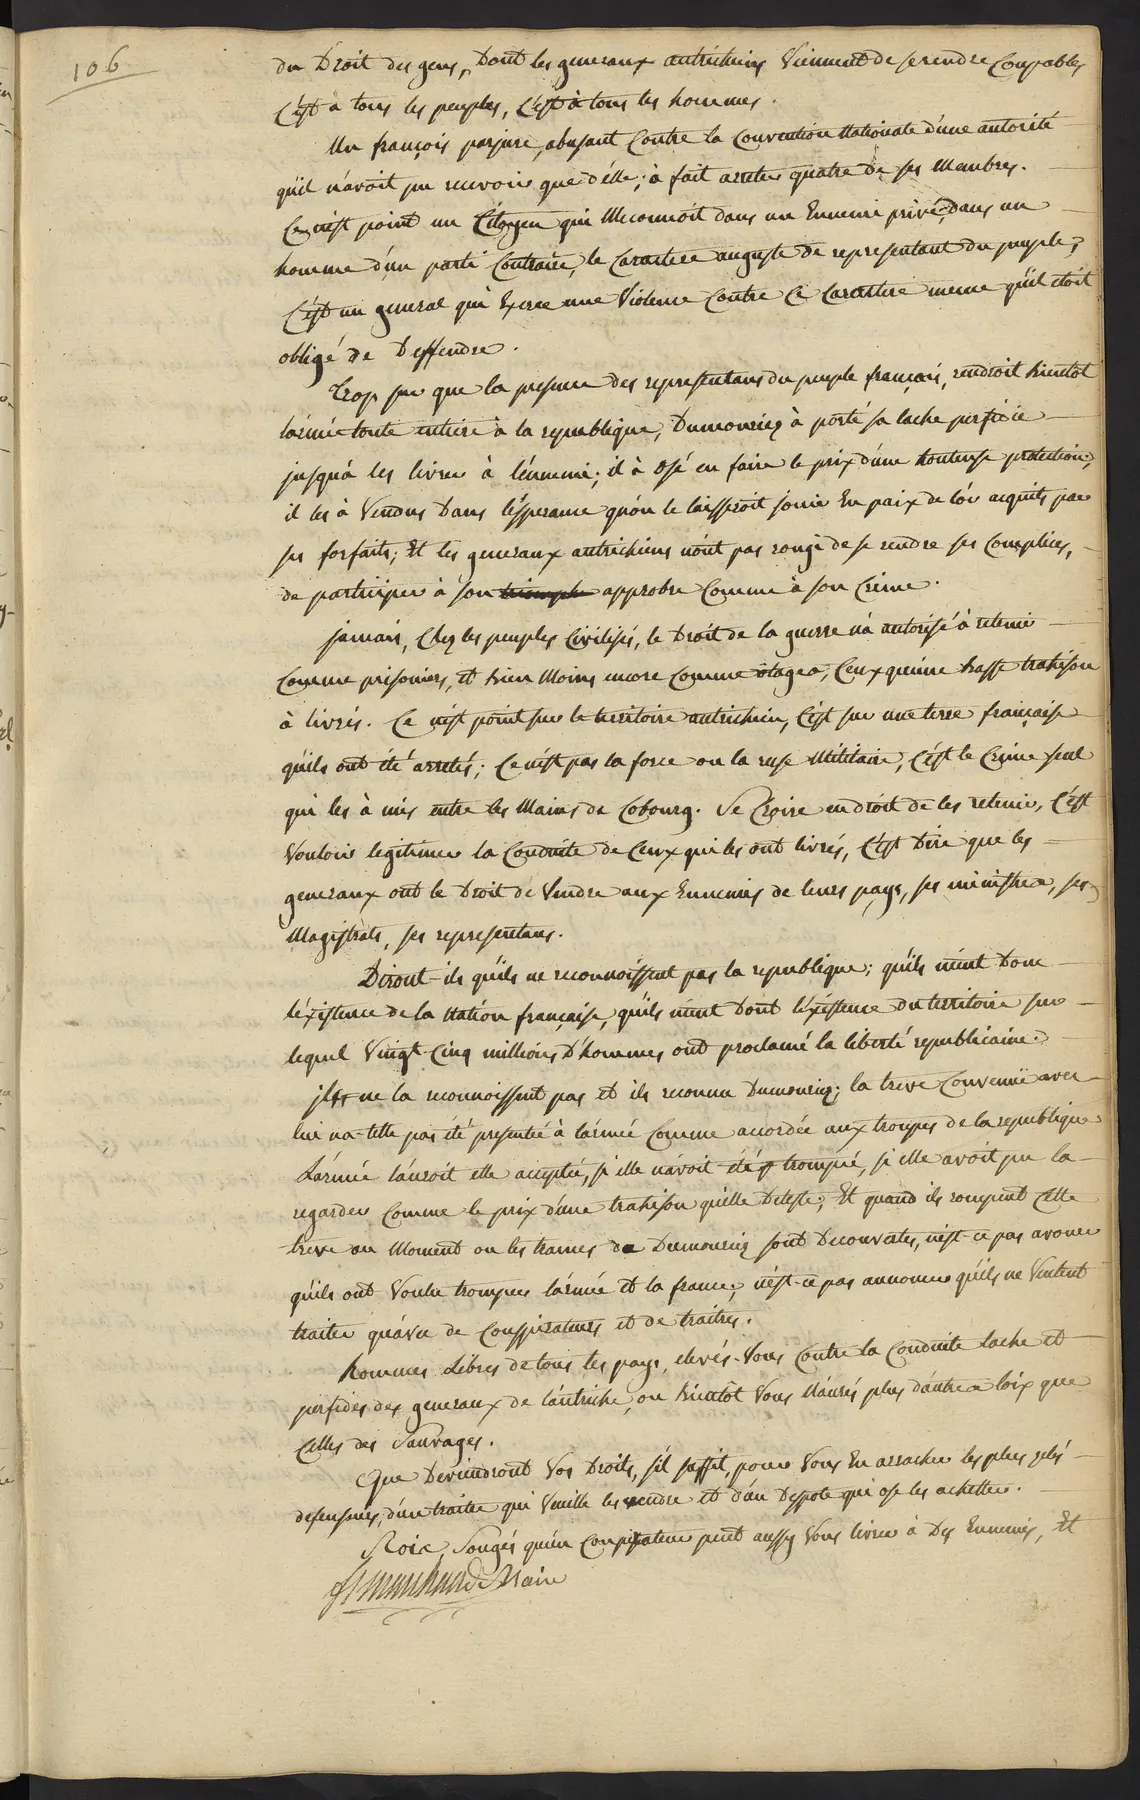 106
du Droit des gens, Dont les generaux autrichiens Viennent de se rendre Coupables
C'est à tous les peuples, C'est à tous les hommes.
Un françois parjure, abusant Contre la Convention Nationale d'une autorité
qu'il n'avoit pu recevoir que d'elle; à fait arreter quatre de ses Membres.
Ce n'est point un Citoyen qui Meconnoit dans un Ennemi privé, dans un
homme d'un parti Contraire, le Caractere auguste de representant du peuple,
C'est un general qui Exerce une Violence Contre Ce Caractere meme qu'il etoit
obligé de Deffendre.
Trop sur que la presence des representans du peuple français, rendroit bientot
l'armée toute entiere à la republique, Dumouriez à porté sa lache perfidie
jusqu'à les livrer à l'énnemi; il à osé en faire le prix d'une honteuse protection,
il les à Vendus Dans l'ésperance qu'on le laisseroit jouir En paix de l'or acquits par
ses forfaits; Et les generaux autrichiens n'ont pas rougi de se rendre ses Complices,
de participer à son triomphe approbre Comme à son Crime.
jamais, Chez les peuples Civilisés, le Droit de la guerre n'à autorisé à retenir
Comme prisoniers, et bien Moins encore Comme otages, Ceux qu'une basse trahison
à livrés. Ce n'est point sur le territoire autrichien, C'est sur une terre française
qu'ils ont été arretés; Ce n'est pas la force ou la ruse Militaire, C'ést le Crime seul
qui les à mis entre les Mains de Cobourg. Se Croire en droit de les retenir, C'est
Vouloir legitimer la Conduite de Ceux qui les ont livrés, C'est Dire que les
generaux ont le Droit de Vendre aux Ennemis de leurs pays, ses ministres, ses
Magistrats, ses representans.
Diront-ils qu'ils ne reconnoissent pas la republique; qu'ils nient Donc
l'éxistence de la Nation française, qu'ils nient Dont l'éxistence du territoire sur
lequel Vingt-Cinq millions D'hommes ont proclamé la liberté republicaine.
ils ne la reconnoissent pas et ils reconnu Dumouriez; la treve Convenüe avec
lui n'a-t-elle pas été presentée à l'armée Comme accordée aux troupes de la republique
L'armée l'auroit elle acceptée, si elle n'avoit été trompée, si elle avoit pu la
regarder Comme le prix d'une trahison qu'elle Deteste; Et quand ils rompent Cette
treve au Moment ou les trames de Dumouriez sont Decouvertes, n'est-ce pas avouer
qu'ils ont Voulu tromper l'armée et la france, n'est-ce pas annoncer qu'ils ne Veulent
traiter qu'avec de Conspirateurs et de traitres.
hommes Libres de tous les pays, elevés-Vous Contre la Conduite lache et
perfides des generaux de l'autriche, ou bientôt Vous N'aurés plus d'autres loix que
Celles des Sauvages.
Que Deviendront Vos Droits, s'il suffit, pour Vous En arracher les plus zelés
defenseurs, d'un traitre qui Veuille les vendre et d'un Despote qui ose les acheter.
Rois, Songés qu'un Conspirateur peut aussy Vous livrer à Des Ennemis, Et
Marchand Maire